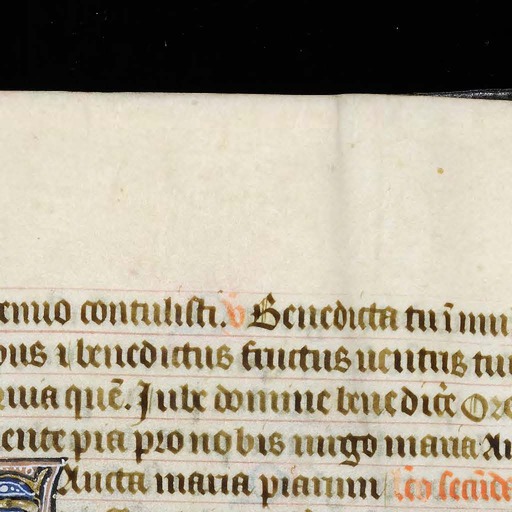 contulisti. v̄ Benedicta tu ī mu
bus ⁊ benedictus fructus uentris tui
quē. Jube domine benedic̄e Ore
mente pia pro nobis uirgo maria Au
Sancta maria piarum lc̄o secūda